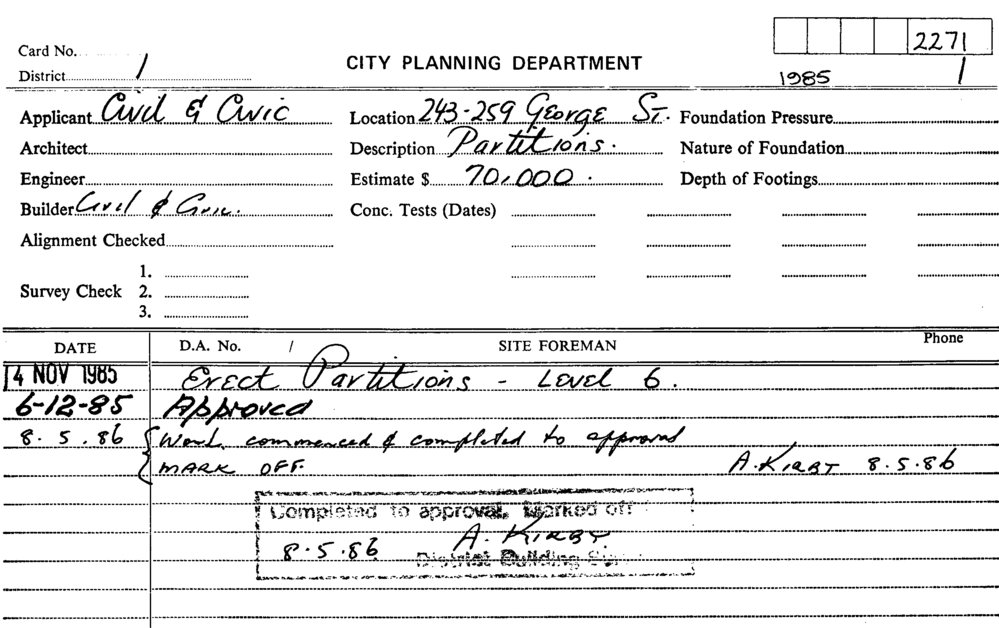 2271
Card No.
District 1
CITY PLANNING DEPARTMENT
1985 1
Applicant Civil & Civic Location 243-259 George St. Foundation Pressure
Architect Description Partitions. Nature of Foundation
Engineer Estimate $ 70,000. Depth of Footings
Builder Civil & Civic. Conc. Tests (Dates)
Alignment Checked
1.
Survey Check 2.
3.
DATE D.A. No. / SITE FOREMAN Phone
14 NOV 1985 Erect Partitions - Level 6.
6-12-85 Approved
8.5.86 Work commenced & completed to approval
MARK OFF. A. KIRBY 8.5.86
Completed to approval, Marked off
8.5.86 A. KIRBY
District Building